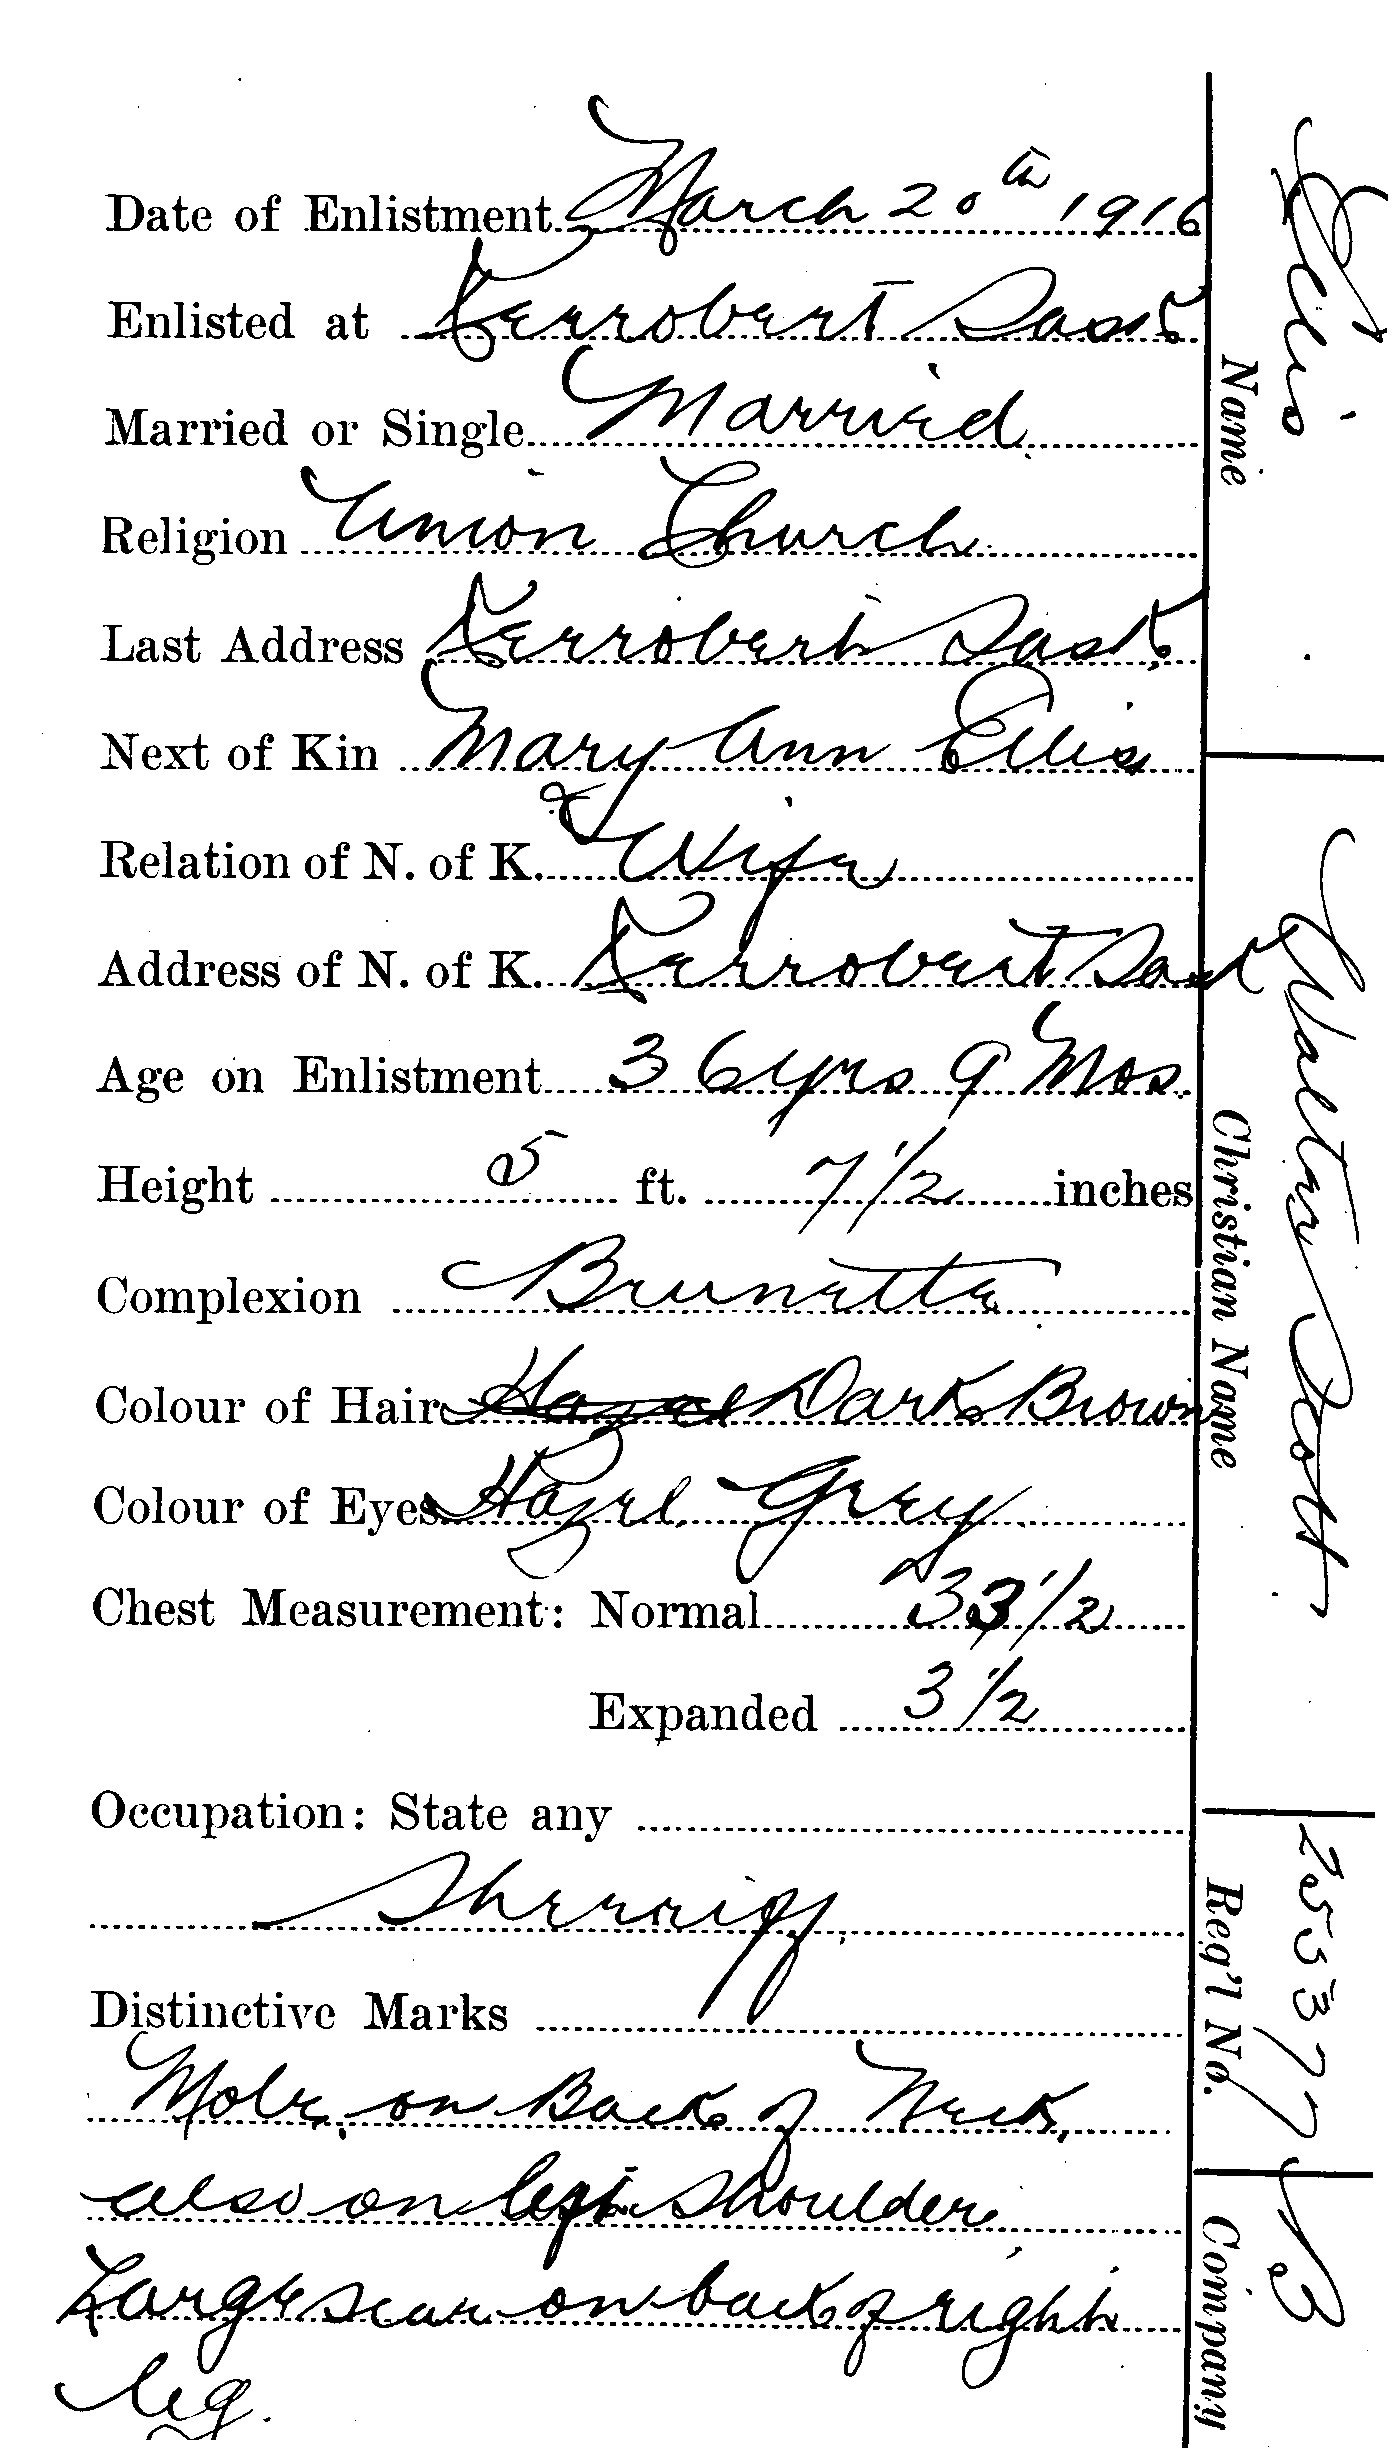 Date of Enlistment March 20th 1916
Enlisted at Kerrobert Sask
Married or Single Married
Religion Union Church
Last Address Kerrobert Sask
Next of Kin Mary Ann Ellis
Relation of N. of K. Wife
Address of N. of K. Kerrobert Sask
Age on Enlistment 36 yrs 9 Mos.
Height 5 ft. 7 1/2 inches
Complexion Brunette
Colour of Hair Hazel Dark Brown
Colour of Eyes Hazel Grey
Chest Measurement: Normal 33 1/2
Expanded 3 1/2
Occupation: State any
Sherriff
Distinctive Marks
Mole on Back of Neck,
also on left Shoulder
Large scar on back of right
leg.
Ellis
Name
Walter Scott
Christian Name
255377
Reg'l No.
B
Company